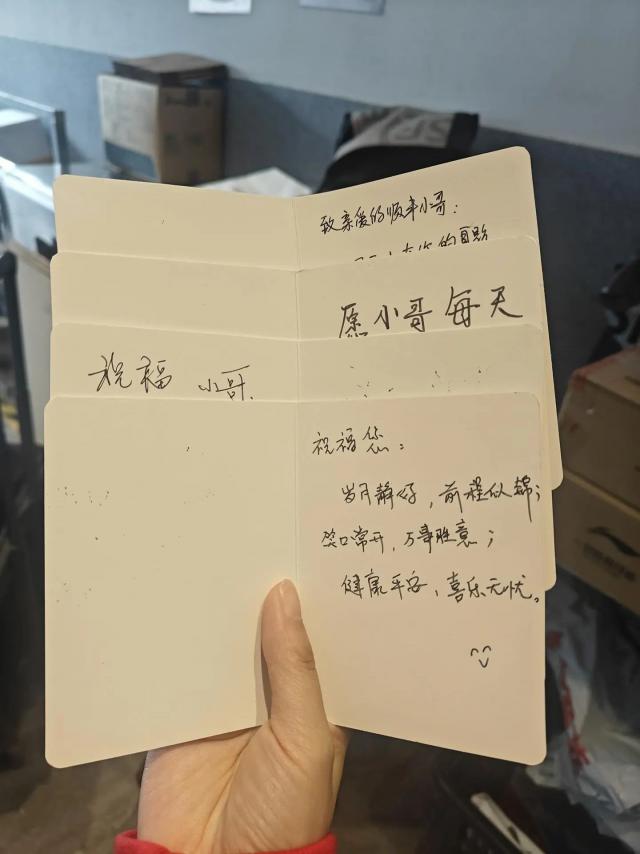 致亲爱的顺丰小哥：
的冒险
愿小哥每天
祝福 小哥
祝福您：
岁月静好，前程似锦；
笑口常开，万事胜意；
健康平安，喜乐无忧。